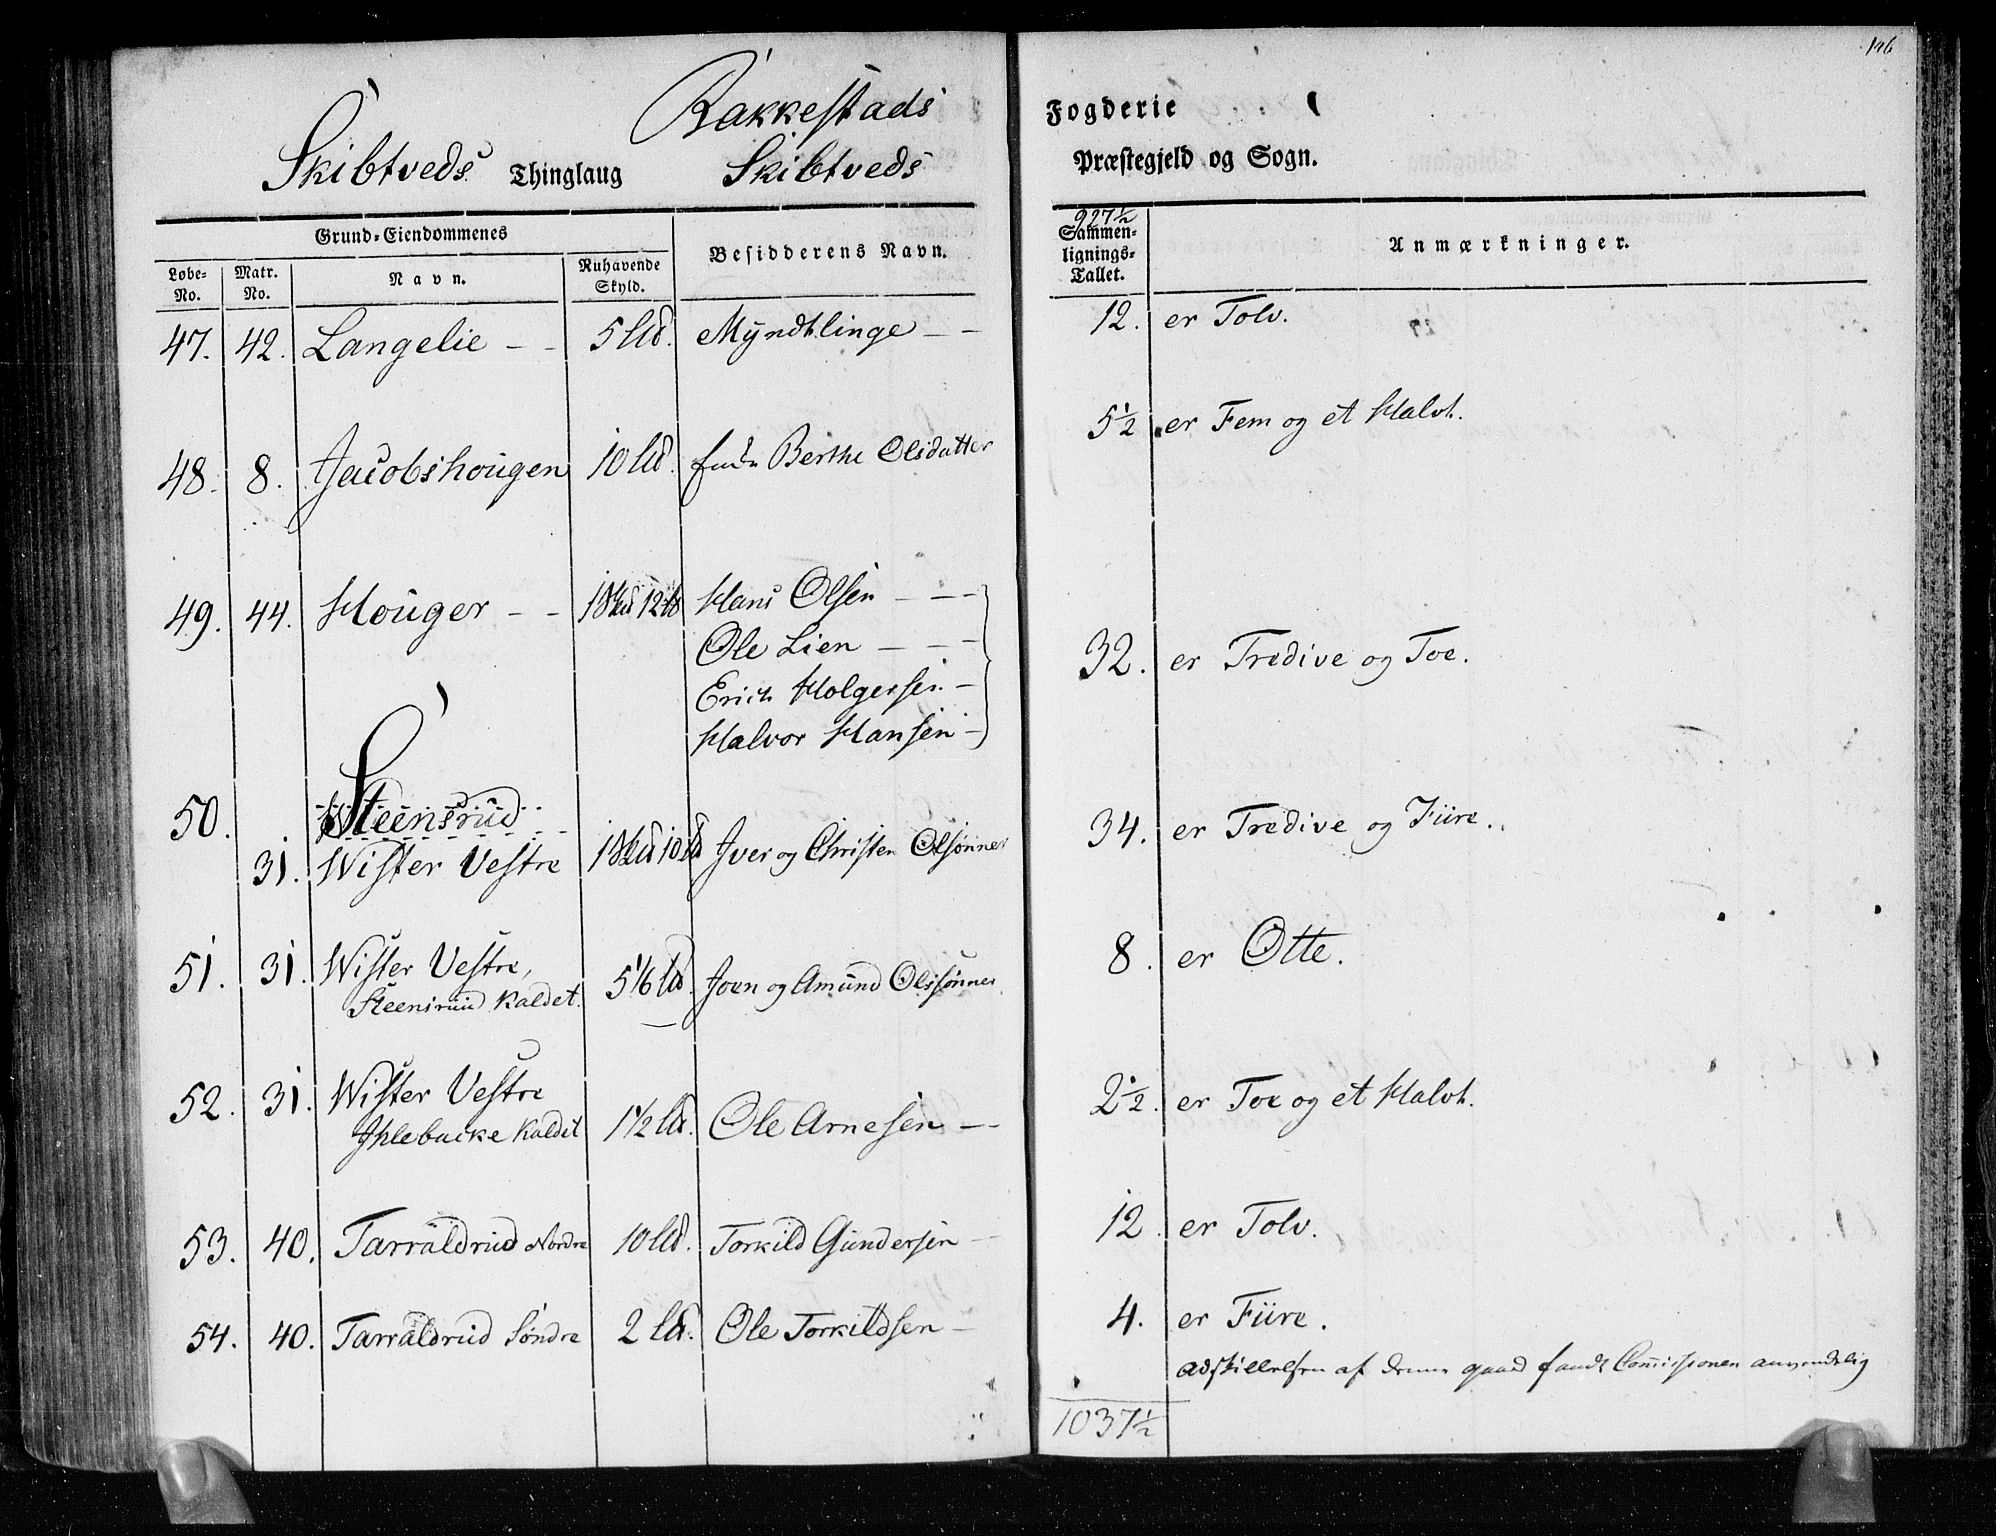 146
Rakkestads Fogderie
Skibtveds Thinglaug Skibtveds Præstegjeld og Sogn.
Grund-Eiendommenes
Løbe-No. Matr. No. Navn. Nuhavende Skyld. Besidderens Navn. 927½ Sammenlignings-Tallet. Anmærkninger.
47. 42. Langelie - - 5 Lld. Myndtlinge - - 12. er Tolv.
48. 8. Jacobshougen 10 Lld. Berthe Olsdatter 5½ er Fem og et Halvt.
49. 44. Houger - - 1 Skd 12 Hans Olsen - - -
Ole Lien - - - 32. er Tredive og Toe.
Erich Holgersen -
Halvor Hansen -
50. Steensrud
31. Wister Vestre 1 Skd 10 Ld Iver og Christen Olsønner 34. er Tredive og Fiire.
51. 31. Wister Vestre, Steensrud kaldet. 5 1/6 Ld. Joen og Amund Olssønner 8. er Otte.
52. 31. Wister Vestre Ihlebacke kaldet 1½ Ld. Ole Arnesen - - 2½. er Toe og et Halvt.
53. 40. Tarraldrud Nordre 10 Lld. Torkild Gundersen - 12 er Tolv.
54. 40. Tarraldrud Søndre 2 Ld. Ole Torkildsen - 4. er Fiire.
Adskillelsen af denne gaard fandt Commissionen anvendelig
1037½